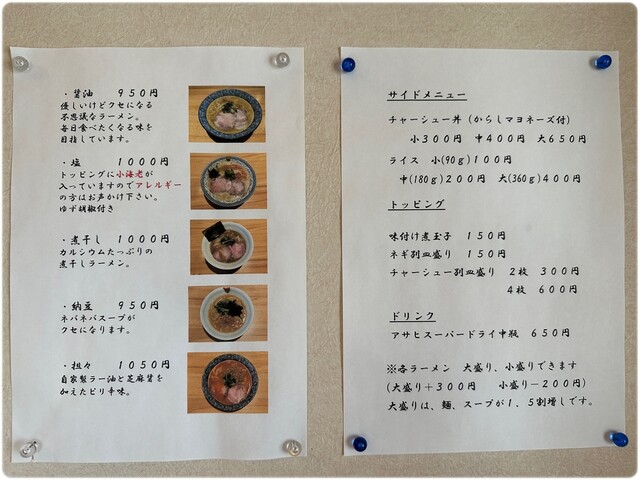 ・醤油　９５０円
優しいけどクセになる
不思議なラーメン。
毎日食べたくなる味を
目指しています。
・塩　１０００円
トッピングに小海老が
入っていますのでアレルギー
の方はお声かけ下さい。
ゆず胡椒付き
・煮干し　１０００円
カルシウムたっぷりの
煮干しラーメン。
・納豆　９５０円
ネバネバスープが
クセになります。
・担々　１０５０円
自家製ラー油と芝麻醤を
加えたピリ辛味。
サイドメニュー
チャーシュー丼（からしマヨネーズ付）
小３００円　中４００円　大６５０円
ライス　小(90ｇ)１００円
中(180ｇ)２００円　大(360ｇ)４００円
トッピング
味付け煮玉子　１５０円
ネギ別皿盛り　１５０円
チャーシュー別皿盛り　２枚　３００円
４枚　６００円
ドリンク
アサヒスーパードライ中瓶　６５０円
※各ラーメン　大盛り、小盛りできます
(大盛り＋３００円　小盛り－２００円)
大盛りは、麺、スープが１．５割増しです。